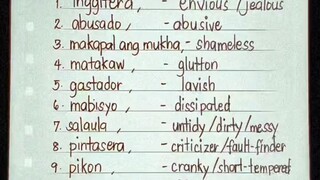 1. inggitera, - envious/jealous
2. abusado, - abusive
3. makapal ang mukha,- shameless
4. matakaw, - glutton
5. gastador, - lavish
6. mabisyo, - dissipated
7. salaula, - untidy/dirty/messy
8. pintasera, - criticizer/fault-finder
9. pikon, - cranky/short-tempered